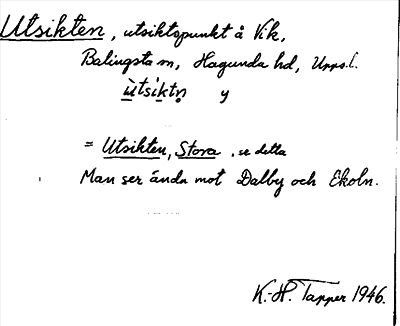 Utsikten, utsiktspunkt å Vik,
Balingsta sn, Hagunda hd, Upps.l.
ùtsíktn̥ y
= Utsikten, Stora, se detta
Man ser ända mot Dalby och Ekoln.
K.-H. Tapper 1946.